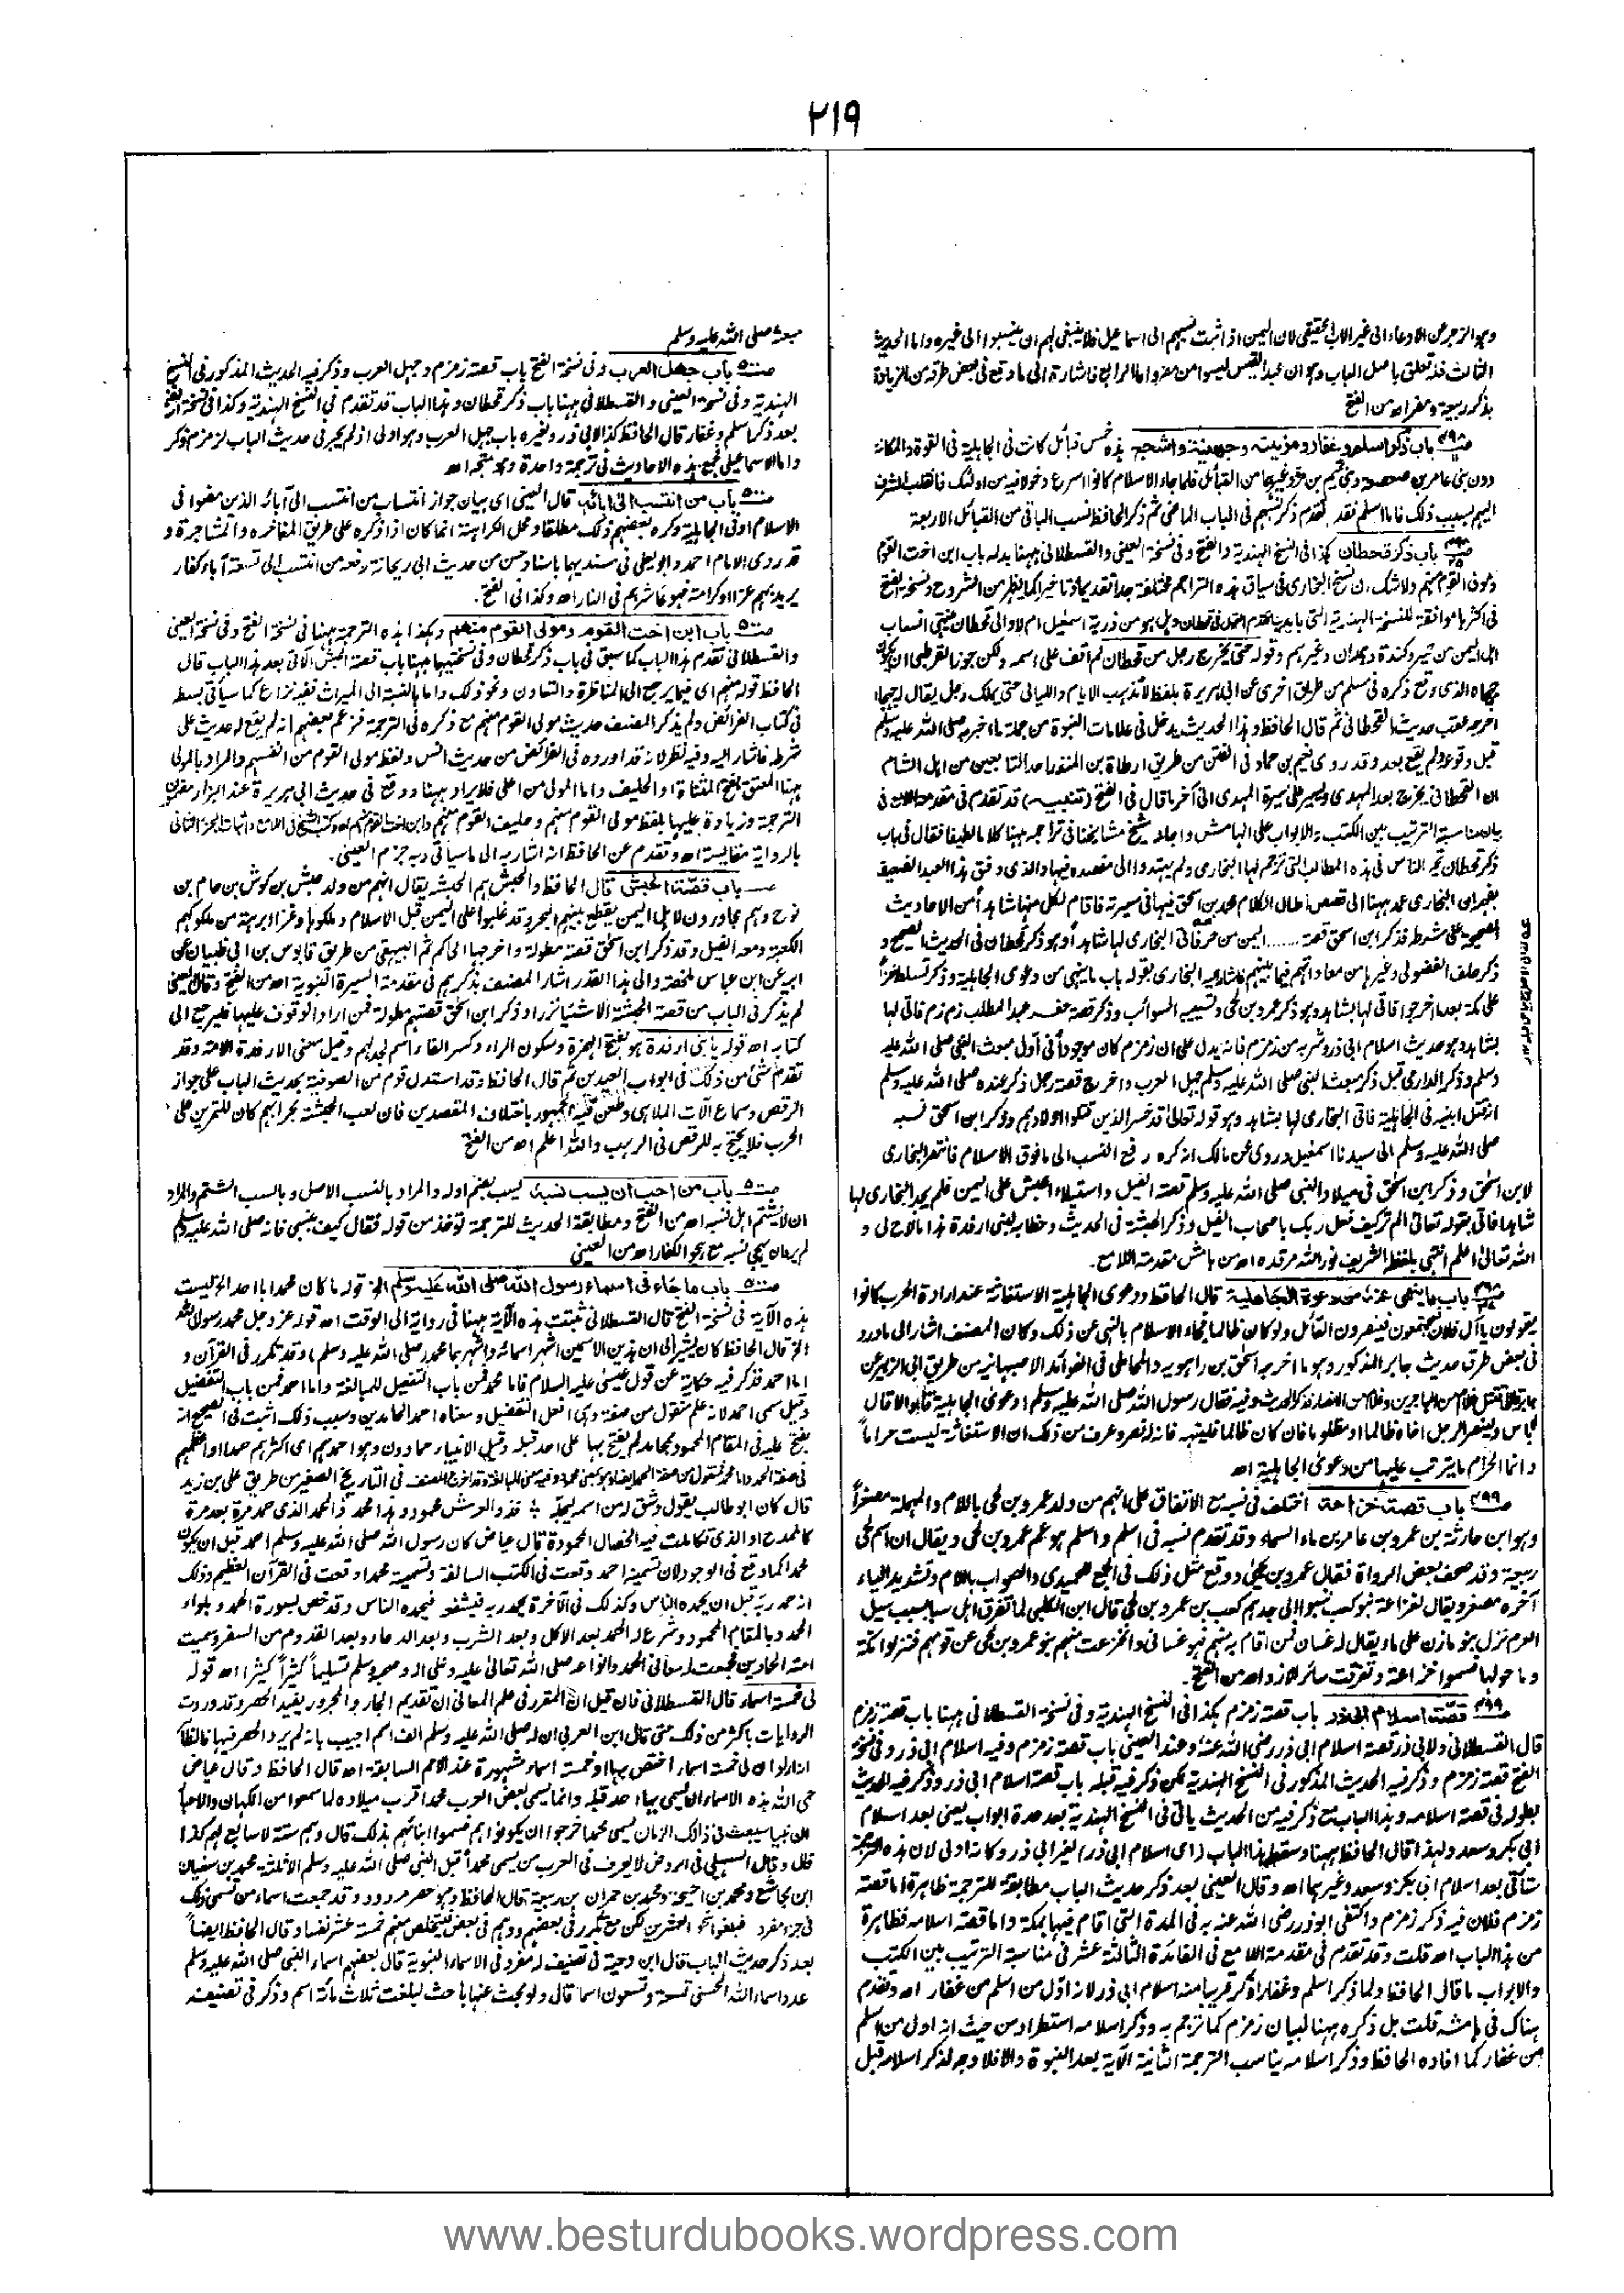 ٢١٩
وهو الزجر عن الادعاء الى غير الاب الحقيقى لان اليمن اذا ثبت نسبهم الى اسماعيل فلا ينبغى لهم ان ينسبوا الى غيره واما الحديث
الثالث فله تعلق باصل الباب وهو ان عبد القيس ليسوا من مضر واما الرابع فاشارة الى ما وقع فى بعض طرقه من الزيادة
بذكر ربيعة ومضر اه من الفتح
باب ذكر اسلم وغفار ومزينة وجهينة واشجع هذه خمس قبائل كانت فى الجاهلية فى القوة والمكانة
دون بنى عامر بن صعصعة وبنى تميم بن مر وغيرهما من القبائل فلما جاء الاسلام كانوا اسرع دخولا فيه من اولئك فانقلب الشرف
اليهم بسبب ذلك فاما اسلم فقد تقدم ذكر نسبهم فى الباب الماضى ثم ذكر الحافظ نسب الباقى من القبائل الاربعة
باب ذكر قحطان هكذا فى النسخ الهندية والفتح وفى نسخة العينى والقسطلانى ههنا بدله باب ابن اخت القوم
ومولى القوم منهم ولا شك ان نسخ البخارى فى سياق هذه التراجم مختلفة جدا تقديما وتاخيرا كما يظهر من الشروح ونسخة الفتح
اهل اليمن من حمير وكندة وهمدان وغيرهم وقوله حتى يخرج رجل من قحطان لم اقف على اسمه ولكن جوز القرطبى ان يكون
جهجاه الذى وقع ذكره فى مسلم من طريق اخرى عن ابى هريرة بلفظ لا تذهب الايام والليالى حتى يملك رجل يقال له جهجاه
اخرجه عقب حديث القحطانى ثم قال الحافظ وهذا الحديث يدخل فى علامات النبوة من جملة ما اخبر به صلى الله عليه وسلم
قبل وقوعه ولم يقع بعد وقد روى نعيم بن حماد فى الفتن من طريق ارطاة بن المنذر احد التابعين من اهل الشام
ان القحطانى يخرج بعد المهدى ويسير على سيرة المهدى الى آخر ما قال فى الفتح (تنبيه) قد تقدم فى مقدمة اللامع فى
بيان مناسبة الترتيب بين الكتب والابواب على الهامش واجاد شيخ مشايخنا فى تراجمه ههنا كلاما لطيفا فقال فى باب
ذكر قحطان تحير الناس فى هذه المطالب التى ترجم لها البخارى ولم يهتدوا الى مقصده فيها والذى وفق لهذا العبد الضعيف
ان البخارى عمد ههنا الى قصص اطال الكلام محمد بن اسحق فيها فى سيرته فاقام لكل منها شاهدا من الاحاديث
ذكر حلف الفضول وغيرها من معاداتهم فيما بينهم فاشار اليه البخارى بقوله باب ما ينهى من دعوى الجاهلية وذكر تسلط
بشاهد وهو حديث اسلام ابى ذر وشربه من زمزم فانه يدل على ان زمزم كان موجودا فى اول مبعث النبى صلى الله عليه
وسلم وذكر الدارمى قبل ذكر مبعث النبى صلى الله عليه وسلم جهل العرب واخرج قصة رجل ذكر عنده صلى الله عليه وسلم
انه قتل ابنته فى الجاهلية فاتى البخارى لها بشاهد وهو قوله تعالى قد خسر الذين قتلوا اولادهم وذكر ابن اسحق نسبه
صلى الله عليه وسلم الى سيدنا اسمعيل وروى عن مالك انه كره رفع النسب الى ما فوق الاسلام فانتصر البخارى
لابن اسحق وذكر ابن اسحق فى ميلاد النبى صلى الله عليه وسلم قصة الفيل واستيلاء الحبش على اليمن فلم يجد البخارى لها
شاهدا فاتى بقوله تعالى الم تر كيف فعل ربك باصحاب الفيل وذكر الحبشة فى الحديث وخطابه لبنى ارفدة هذا مالاح لى و
الله تعالى اعلم انتهى بلفظه الشريف نور الله مرقده اه من هامش مقدمة اللامع.
باب ما ينهى عنه من دعوة الجاهلية قال الحافظ ودعوى الجاهلية الاستغاثة عند ارادة الحرب كانوا
يقولون يا آل فلان فيجتمعون فينصرون القائل ولو كان ظالما فجاء الاسلام بالنهى عن ذلك وكان المصنف اشار الى ما ورد
فى بعض طرق حديث جابر المذكور وهو ما اخرجه اسحق بن راهويه والمحاملى فى الفوائد الاصبهانية من طريق ابى الزبير عن
جابر قال اقتتل غلام من المهاجرين وغلام من الانصار فذكر الحديث وفيه فقال رسول الله صلى الله عليه وسلم ادعوى الجاهلية قالوا لا قال
لا باس ولينصر الرجل اخاه ظالما او مظلوما فان كان ظالما فلينهه فانه له نصر وعرف من ذلك ان الاستغاثة ليست حراما
وانما الحرام ما يترتب عليها من دعوى الجاهلية اه
باب قصة خزاعة اختلف فى نسبهم مع الاتفاق على انهم من ولد عمرو بن لحى باللام والمهملة مصغرا
وهو ابن حارثة بن عمرو بن عامر بن ماء السماء وقد تقدم نسبه فى اسلم واسلم هو عم عمرو بن لحى ويقال ان اسم لحى
ربيعة وقد صحف بعض الرواة فقال عمرو بن يحيى ووقع مثل ذلك فى الجمع للحميدى والصواب باللام وتشديد الياء
آخره مصغر ويقال لخزاعة بنو كعب نسبوا الى جدهم كعب بن عمرو بن لحى قال ابن الكلبى لما تفرق اهل سبا بسبب سيل
العرم نزل بنو مازن على ماء يقال له غسان فمن اقام به منهم فهو غسانى وانخزعت منهم بنو عمرو بن لحى عن قومهم فنزلوا مكة
وما حولها فسموا خزاعة وتفرقت سائر الازد اه من الفتح.
باب قصة زمزم هكذا فى النسخ الهندية وفى نسخة القسطلانى ههنا باب قصة زمزم
قال القسطلانى ولابى ذر قصة اسلام ابى ذر رضى الله عنه وعند العينى باب قصة زمزم وفيه اسلام ابى ذر وفى نسخة
الفتح قصة زمزم وذكر فيه الحديث المذكور فى النسخ الهندية لكن ذكر فيه قبله باب قصة اسلام ابى ذر وذكر فيه الحديث
بطوله فى قصة اسلامه وهذا الباب مع ذكر فيه من الحديث ياتى فى النسخ الهندية بعد عدة ابواب يعنى بعد اسلام
ابى بكر وسعد ولهذا قال الحافظ ههنا وسقط هذا الباب (اى اسلام ابى ذر) لغير ابى ذر وكانه اولى لان هذه الترجمة
ستاتى بعد اسلام ابى بكر وسعد وغيرهما اه وقال العينى بعد ذكر حديث الباب مطابقة للترجمة ظاهرة اما قصة
زمزم فلان فيه ذكر زمزم واكتفى ابو ذر رضى الله عنه به فى المدة التى اقام فيها بمكة واما قصة اسلامه فظاهرة
من هذا الباب اه قلت وقد تقدم فى مقدمة اللامع فى الفائدة الثالثة عشر فى مناسبة الترتيب بين الكتب
والابواب ما قال الحافظ ولما ذكر اسلم وغفار ذكر قريبا منه اسلام ابى ذر لانه اول من اسلم من غفار اه وتقدم
هناك فى هامشه قلت بل ذكره ههنا لبيان زمزم كما ترجم به وذكر اسلامه استطراد من حيث انه اول من اسلم
من غفار كما افاده الحافظ وذكر اسلامه يناسب الترجمة الثانية الآتية بعد النبوة والا فلا وجه لذكر اسلامه قبل
مبعثه صلى الله عليه وسلم
باب جهل العرب وفى نسخة الفتح باب قصة زمزم وجهل العرب وذكر فيه الحديث المذكور فى النسخ
الهندية وفى نسخة العينى والقسطلانى ههنا باب ذكر قحطان وهذا الباب قد تقدم فى النسخ الهندية وكذا فى نسخة الفتح
بعد ذكر اسلم وغفار قال الحافظ كذا لابى ذر ولغيره باب جهل العرب وهو اولى اذ لم يجر فى حديث الباب لزمزم ذكر
واما الاسماعيلى فجمع هذه الاحاديث فى ترجمة واحدة وهو متجه اه
باب من انتسب الى ابائه قال العينى اى بيان جواز انتساب من انتسب الى آبائه الذين مضوا فى
الاسلام او فى الجاهلية وكره بعضهم ذلك مطلقا ومحل الكراهة انما كان اذا ذكره على طريق المفاخرة والمشاجرة و
قد روى الامام احمد وابو يعلى فى مسنديهما باسناد حسن من حديث ابى ريحانة رفعه من انتسب الى تسعة آباء كفار
يريد بهم عزا او كرامة فهو عاشرهم فى النار اه وكذا فى الفتح.
باب ابن اخت القوم ومولى القوم منهم وهكذا هذه الترجمة ههنا فى نسخة الفتح وفى نسخة العينى
والقسطلانى تقدم هذا الباب كما سبق فى باب ذكر قحطان وفى نسختيهما ههنا باب قصة الحبش الآتى بعد هذا الباب قال
الحافظ قوله منهم اى فيما يرجع الى المناظرة والتعاون ونحو ذلك واما بالنسبة الى الميراث ففيه نزاع كما سياتى بسطه
فى كتاب الفرائض ولم يذكر المصنف حديث مولى القوم منهم مع ذكره فى الترجمة فزعم بعضهم انه لم يقع له حديث على
شرطه فاشار اليه وفيه نظر لانه قد اورده فى الفرائض من حديث انس ولفظه مولى القوم من انفسهم والمراد بالمولى
ههنا المعتق بفتح المثناة او الحليف واما المولى من اعلى فلا يراد ههنا ووقع فى حديث ابى هريرة عند البزار مضمون
بالرواية مقايسة اه وتقدم عن الحافظ انه اشار به الى ما سياتى وبه جزم العينى.
باب قصة الحبش قال الحافظ والحبش هم الحبشة يقال انهم من ولد حبش بن كوش بن حام بن
نوح وهم مجاورون لاهل اليمن يقطع بينهم البحر وقد غلبوا على اليمن قبل الاسلام وملكوها وغزا ابرهة من ملوكهم
الكعبة ومعه الفيل وقد ذكر ابن اسحق قصته مطولة واخرجها الحاكم ثم البيهقى من طريق قابوس بن ابى ظبيان عن
ابيه عن ابن عباس ملخصة والى هذا القدر اشار المصنف بذكرهم فى مقدمة السيرة النبوية اه من الفتح وقال العينى
لم يذكر فى الباب من قصة الحبشة الا شيئا نزرا وذكر ابن اسحق قصتهم مطولة فمن اراد الوقوف عليها فليرجع الى
كتابه اه قوله يا بنى ارفدة هو بفتح الهمزة وسكون الراء وكسر الفاء اسم لجدهم وقيل معنى الارفدة الامة وقد
تقدم شئ من ذلك فى ابواب العيدين ثم قال الحافظ وقد استدل قوم من الصوفية بحديث الباب على جواز
الرقص وسماع آلات الملاهى وطعن فيه الجمهور باختلاف المقصدين فان لعب الحبشة بحرابهم كان للتمرين على
الحرب فلا يحتج به للرقص فى اللهو والله اعلم اه من الفتح
باب من احب ان لا يسب نسبه يسب بضم اوله والمراد بالنسب الاصل وبالسب الشتم والمراد
ان لا يشتم اهل نسبه اه من الفتح ومطابقة الحديث للترجمة تؤخذ من قوله فقال كيف بنسبى فانه صلى الله عليه وسلم
لم يرد ان يهجى نسبه مع هجو الكفار اه من العينى
باب ما جاء فى اسماء رسول الله صلى الله عليه وسلم الخ قوله ما كان محمد ابا احد الخ ليست
هذه الآية فى نسخة الفتح قال القسطلانى ثبتت هذه الآية ههنا فى رواية ابى الوقت اه قوله عز وجل محمد رسول الله
الخ قال الحافظ كانه يشير الى ان هذين الاسمين اشهر اسمائه واشهرهما محمد (صلى الله عليه وسلم) وقد تكرر فى القرآن و
اما احمد فذكر فيه حكاية عن قول عيسى عليه السلام فاما محمد فمن باب التفعيل للمبالغة واما احمد فمن باب التفضيل
وقيل سمى احمد لانه علم منقول من صفة وهى افعل التفضيل ومعناه احمد الحامدين وسبب ذلك ما ثبت فى الصحيح انه
يفتح عليه فى المقام المحمود بمحامد لم يفتح بها على احد قبله وقيل الانبياء حمادون وهو احمدهم اى اكثرهم حمدا او اعظمهم
قال كان ابو طالب يقول وشق له من اسمه ليجله ؛ فذو العرش محمود وهذا محمد والمحمد الذى حمد مرة بعد مرة
كالممدح او الذى تكاملت فيه الخصال المحمودة قال عياض كان رسول الله صلى الله عليه وسلم احمد قبل ان يكون
محمدا كما وقع فى الوجود لان تسمية احمد وقعت فى الكتب السالفة وتسمية محمد وقعت فى القرآن العظيم وذلك
انه حمد ربه قبل ان يحمده الناس وكذلك فى الآخرة يحمد ربه فيشفعه فيحمده الناس وقد خص بسورة الحمد وبلواء
الحمد وبالمقام المحمود وشرع له الحمد بعد الاكل وبعد الشرب وبعد الدعاء وبعد القدوم من السفر وسميت
امته الحمادين فجمعت له معانى الحمد وانواعه صلى الله تعالى عليه وعلى آله وصحبه وسلم تسليما كثيرا كثيرا اه قوله
لى خمسة اسماء قال القسطلانى فان قيل ان المقرر فى علم المعانى ان تقديم الجار والمجرور يفيد الحصر وقد وردت
الروايات باكثر من ذلك حتى قال ابن العربى ان له صلى الله عليه وسلم الف اسم اجيب بانه لم يرد الحصر فيها فالظاهر
انه اراد ان لى خمسة اسماء اختص بها او خمسة اسماء مشهورة عند الامم السابقة اه قال الحافظ وقال عياض
حمى الله هذه الاسماء ان يسمى بها احد قبله وانما تسمى بعض العرب محمدا قرب ميلاده لما سمعوا من الكهان والاحبار
ان نبيا سيبعث فى ذلك الزمان يسمى محمدا فرجوا ان يكونوا هم فسموا ابناءهم بذلك قال وهم ستة لا سابع لهم كذا
قال وقال السهيلى فى الروض لا يعرف فى العرب من يسمى محمدا قبل النبى صلى الله عليه وسلم الا ثلثة محمد بن سفيان
ابن مجاشع ومحمد بن احيحة ومحمد بن حمران بن ربيعة قال الحافظ وهو حصر مردود وقد جمعت اسماء من تسمى بذلك
فى جزء مفرد فبلغوا نحو العشرين لكن مع تكرر فى بعضهم ووهم فى بعض فيتلخص منهم خمسة عشر نفسا وقال الحافظ ايضا
بعد ذكر حديث الباب قال ابن دحية فى تصنيف له مفرد فى الاسماء النبوية قال بعضهم اسماء النبى صلى الله عليه وسلم
عدد اسماء الله الحسنى تسعة وتسعون اسما قال ولو بحث عنها باحث لبلغت ثلاث مائة اسم وذكر فى تصنيفه
www.besturdubooks.wordpress.com